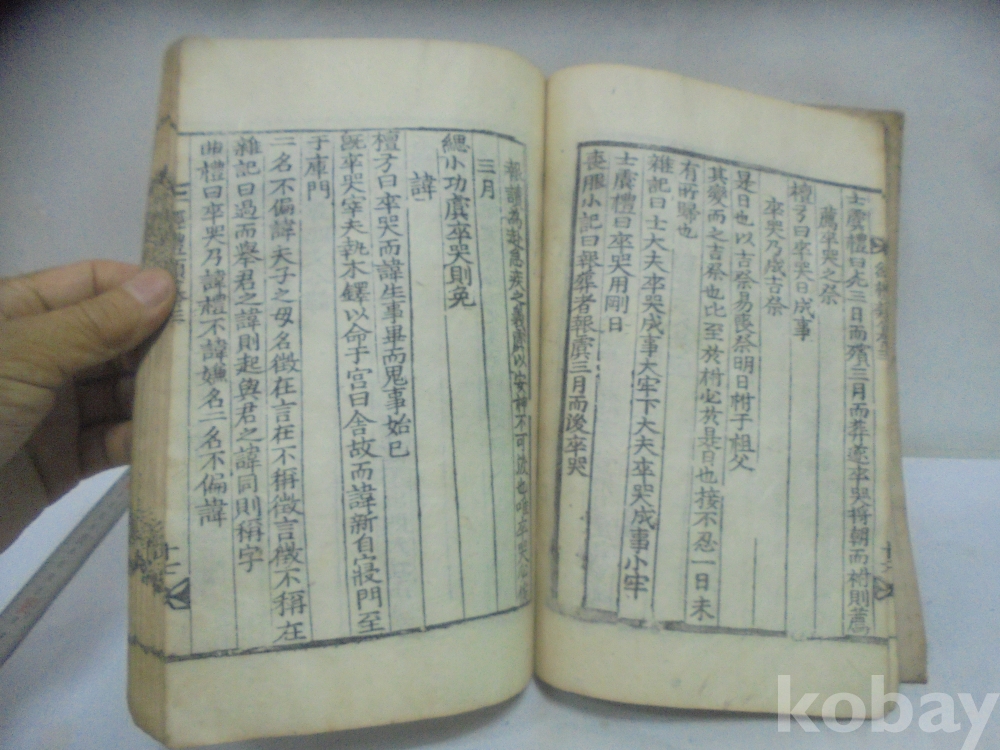 士虞禮曰死三日而殯三月而葬遂卒哭將朝而祔則薦
薦卒哭之祭
檀弓曰卒哭曰成事
卒哭乃成吉祭
是日也以吉祭易喪祭明日祔于祖父
其變而之吉祭也比至於祔必於是日也接不忍一日未
有所歸也
雜記曰士大夫卒哭成事大牢下大夫卒哭成事小牢
士虞禮曰卒哭用剛日
喪服小記曰報葬者報虞三月而後卒哭
報讀為赴急疾之義虞以安神不可
三月
緦小功虞卒哭則免
諱
檀弓曰卒哭而諱生事畢而鬼事始已
旣卒哭宰夫執木鐸以命于宮曰舍故而諱新自寢門至
于庫門
二名不偏諱夫子之母名徵在言在不稱徵言徵不稱在
雜記曰過而舉君之諱則起與君之諱同則稱字
曲禮曰卒哭乃諱禮不諱嫌名二名不偏諱
kobay